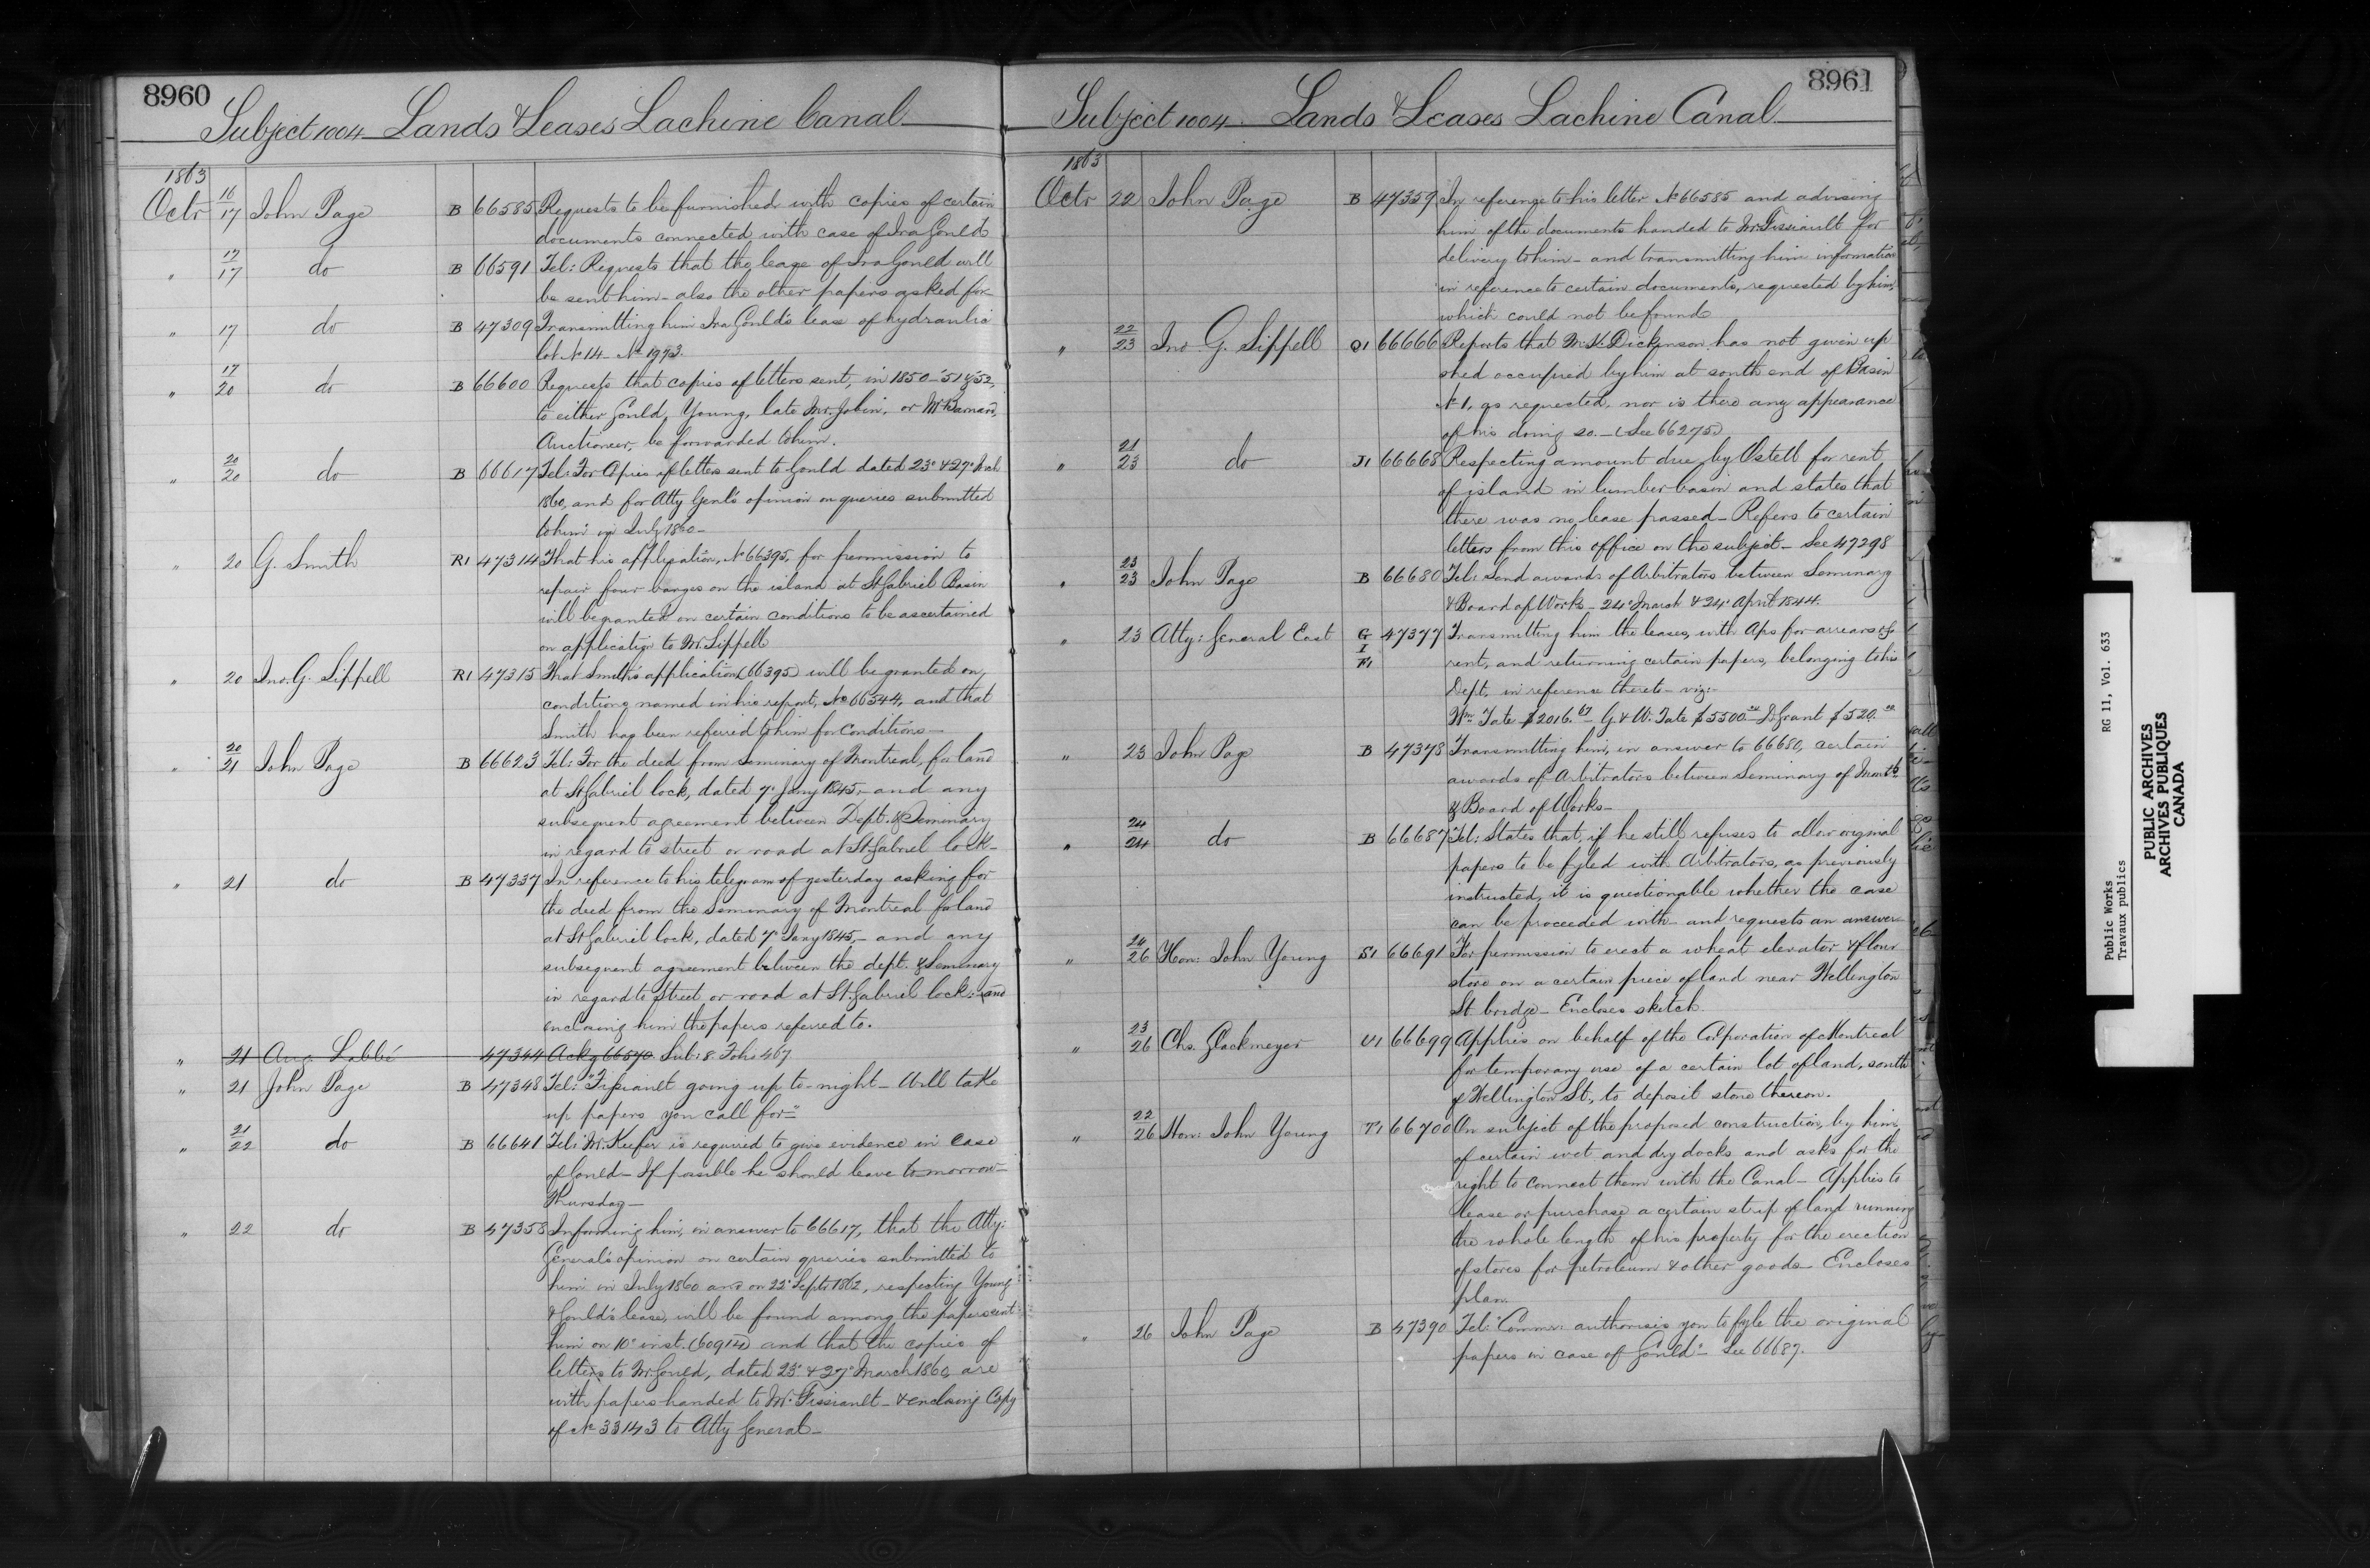 8960
Subject 1004 Lands & Leases Lachine Canal
1863
Octr 16/17 John Page B 66585 Requests to be furnished with copies of certain
documents connected with case of Ira Gould
" 17/17 do B 66591 Tel: Requests that the lease of Ira Gould will
be sent him - also the other papers asked for
" 17 do B 47309 Transmitting him Ira Gould's lease of hydraulic
lot No 14 - No 1973.
" 17/20 do B 66600 Requests that copies of letters sent, in 1850-'51 & '52,
to either Gould, Young, late Mr. Jobin, or Mr Barnard,
Auctioneer, be forwarded to him.
" 20/20 do B 66617 Tel: For Copies of letters sent to Gould dated 23d & 27th Mch
1860, and for Atty Genl's opinion on queries submitted
to him in July 1860 -
" 20 G. Smith R1 47314 That his application, No 66395, for permission to
repair four barges on the island at St Gabriel Basin
will be granted on certain conditions to be ascertained
on application to Mr. Sippell
" 20 Jno. G. Sippell R1 47315 That Smith's application (66395) will be granted on
conditions named in his report, No 66544, and that
Smith has been referred to him for conditions -
" 20/21 John Page B 66623 Tel: For the deed from Seminary of Montreal, for land
at St Gabriel lock, dated 7th Jany 1845, - and any
subsequent agreement between Dept. & Seminary
in regard to street or road at St Gabriel lock -
" 21 do B 47337 In reference to his telegram of yesterday asking for
the deed from the Seminary of Montreal for land
at St Gabriel lock, dated 7th Jany 1845, - and any
subsequent agreement between the dept. & Seminary
in regard to Street or road at St. Gabriel lock: - and
enclosing him the papers referred to.
" 21 Aug. Labbé 47344 Ackg 66570. Sub: 8. Folio 467
" 21 John Page B 47348 Tel: "Fissiault going up to-night - Will take
up papers you call for"
" 21/22 do B 66641 Tel: Mr. Keefer is required to give evidence in Case
of Gould - If possible he should leave tomorrow -
Thursday -
" 22 do B 47358 Informing him, in answer to 66617, that the Atty:
General's opinion on certain queries submitted to
him in July 1860 and on 22d Septr 1862, respecting Young
& Gould's lease, will be found among the papers sent
him on 10th inst. (60914) and that the copies of
letters to Mr. Gould, dated 23d & 27th March 1860, are
with papers handed to Mr. Fissiault - & enclosing Copy
of No 33143 to Atty General -
8961
Subject 1004 Lands & Leases Lachine Canal
1863
Octr 22 John Page B 47359 In reference to his letter No 66585 and advising
him of the documents handed to Mr. Fissiault for
delivery to him - and transmitting him information
in reference to certain documents, requested by him,
which could not be found
" 22/23 Jno. G. Sippell Q1 66666 Reports that M. K. Dickinson has not given up
shed occupied by him at south end of Basin
No 1, as requested, nor is there any appearance
of his doing so. - (See 66275)
" 21/23 do J1 66668 Respecting amount due by Ostell for rent
of island in lumber basin and states that
there was no lease passed - Refers to certain
letters from this office on the subject - See 47298
" 23/23 John Page B 66680 Tel: Send awards of Arbitrators between Seminary
& Board of Works - 24th March & 24th April 1844.
" 23 Atty: General East G I F1 47377 Transmitting him the leases, with Aps for arrears of
rent, and returning certain papers, belonging to his
Dept, in reference thereto - viz: -
Wm Tate $2016.67 G. & W. Tate $5500.00 D. Grant $520.00
" 23 John Page B 47378 Transmitting him, in answer to 66680, certain
awards of Arbitrators between Seminary of Montl
& Board of Works -
" 24/24 do B 66687 Tel: States that, if he still refuses to allow original
papers to be fyled with Arbitrators, as previously
instructed, it is questionable whether the case
can be proceeded with - and requests an answer
" 24/26 Hon: John Young S1 66691 For permission to erect a wheat elevator & flour
store on a certain piece of land near Wellington
St. bridge - Encloses sketch
" 23/26 Chs. Glackmeyer U1 66699 Applies on behalf of the Corporation of Montreal
for temporary use of a certain lot of land, south
of Wellington St., to deposit stone thereon.
" 22/26 Hon: John Young T1 66700 On subject of the proposed construction, by him,
of certain wet and dry docks and asks for the
right to connect them with the Canal - Applies to
lease or purchase a certain strip of land running
the whole length of his property for the erection
of stores for petroleum & other goods - Encloses
plan.
" 26 John Page B 47390 Tel: "Commr: authorises you to fyle the original
papers in case of Gould" - See 66687.
Public Works RG 11, Vol. 633
Travaux publics
PUBLIC ARCHIVES
ARCHIVES PUBLIQUES
CANADA